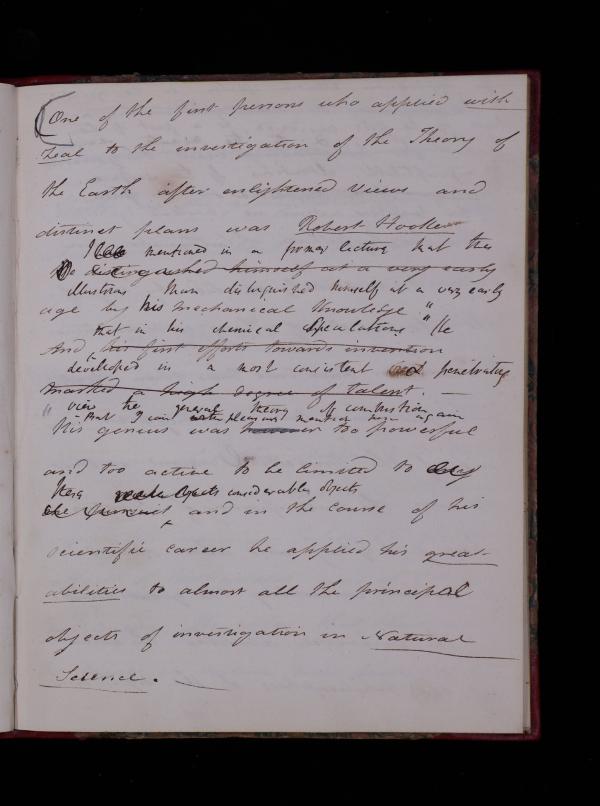 One of the first persons who applied with
zeal to the investigation of the Theory of
the Earth after enlightened views and
distinct plans was Robert Hooke
I mentioned in a former lecture that this
distinguished himself at a very early
illustrious Man distinguished himself at a very early
age by his mechanical knowledge "
that in his chemical speculations " He
And his first efforts towards invention
developed in a most consistent and penetrating
marked a high degree of talent. —
" view the general theory of combustion
- But I can with pleasure mention him again
His genius was however too powerful
and too active to be limited to any
these objects considerable objects
and in the course of his
scientific career he applied his great
abilities to almost all the principal
objects of investigation in Natural
Science. —